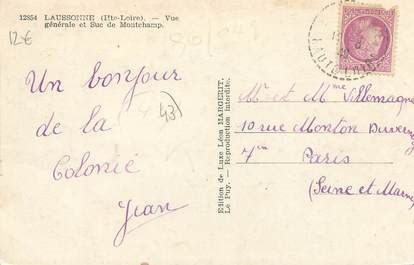 12854 LAUSSONNE (Hte-Loire). — Vue
générale et Suc de Montchamp.
12€
Un bonjour
de la
Colonie
Jean
43
Edition de Luxe Léon MARGERIT,
Le Puy. — Reproduction interdite.
Mr et Mme Villemagne
10 rue Monton Duverne
7em Paris
(Seine et Marne